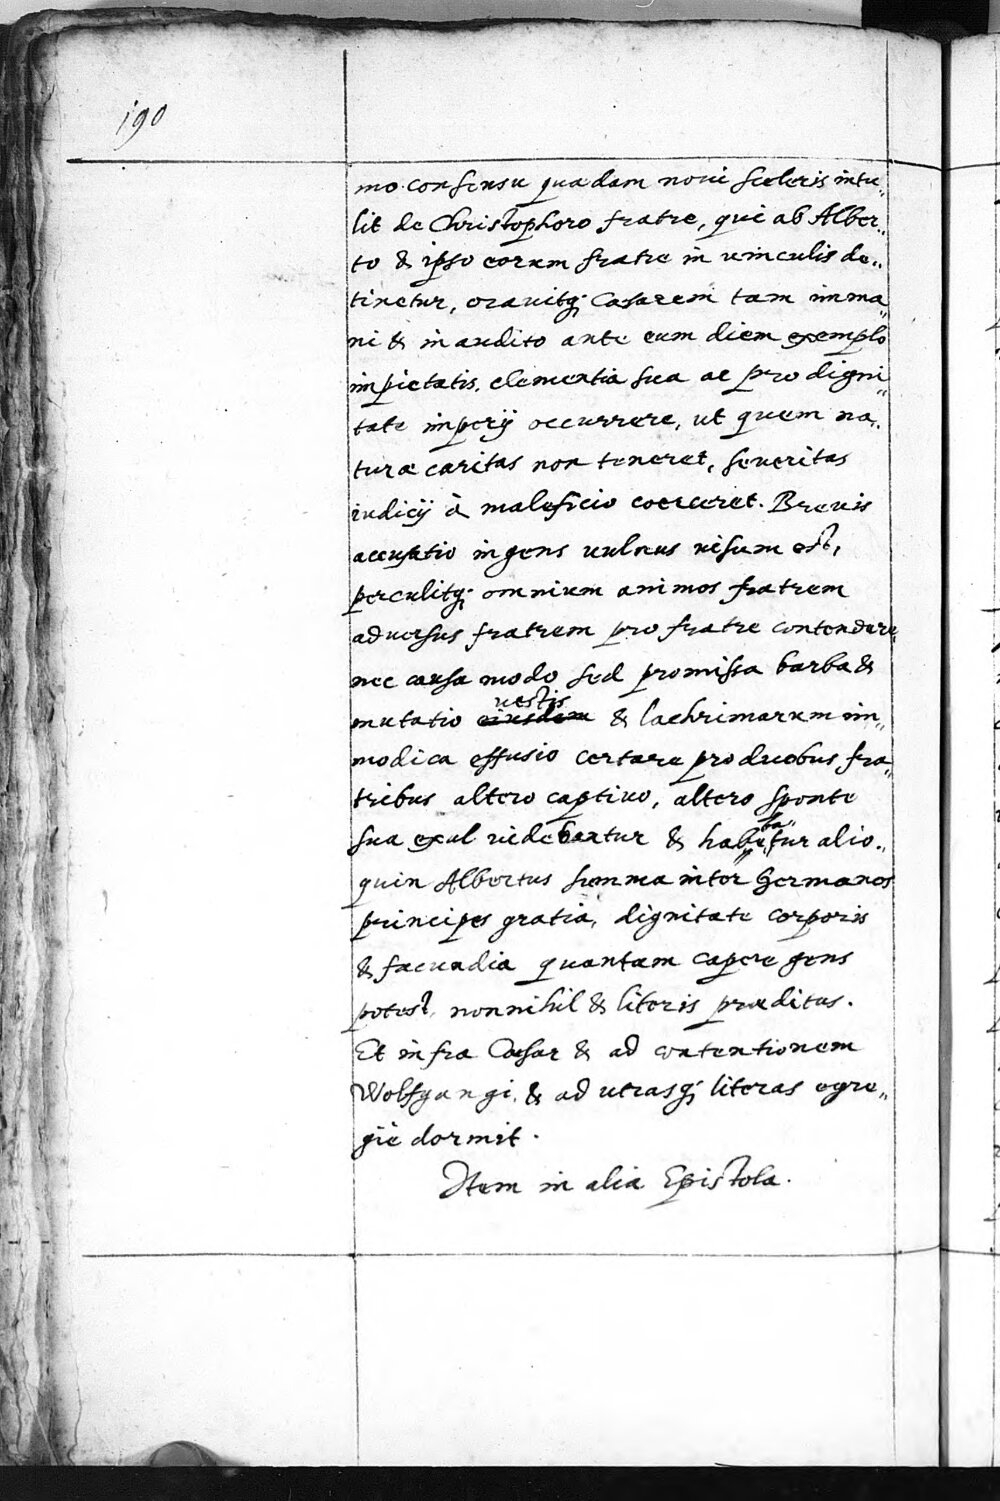 190
mo consensu quædam novi sceleris intu„
lit de Christophoro fratre, qui ab Alber„
to & ipso eorum fratre in uinculis de„
tinetur, orauitq; Cæsarem tam imma„
ni & inaudito ante eum diem exemplo
impietatis, clementia sua ac pro digni„
tate imperij occurrere, ut quem na„
turæ caritas non teneret, seueritas
iudicij à maleficio coerceret. Breuis
accusatio ingens uulnus uisum est,
perculitq; omnium animos fratrem
aduersus fratrem pro fratre contendere
nec causa modo sed promissa barba &
uestis
mutatio eiusdem & lachrimarum im„
modica effusio certare pro duobus fra„
tribus altero captiuo, altero sponte
sua exul uidebantur & habebatur alio„
quin Albertus summa inter Germanos
principes gratia, dignitate corporis
& facundia quantam capere gens
potest, nonnihil & literis præditus.
Et infra Cæsar & ad contentionem
Wolfgangi, & ad utrasq; literas egre„
gie dormit.
Item in alia Epistola.